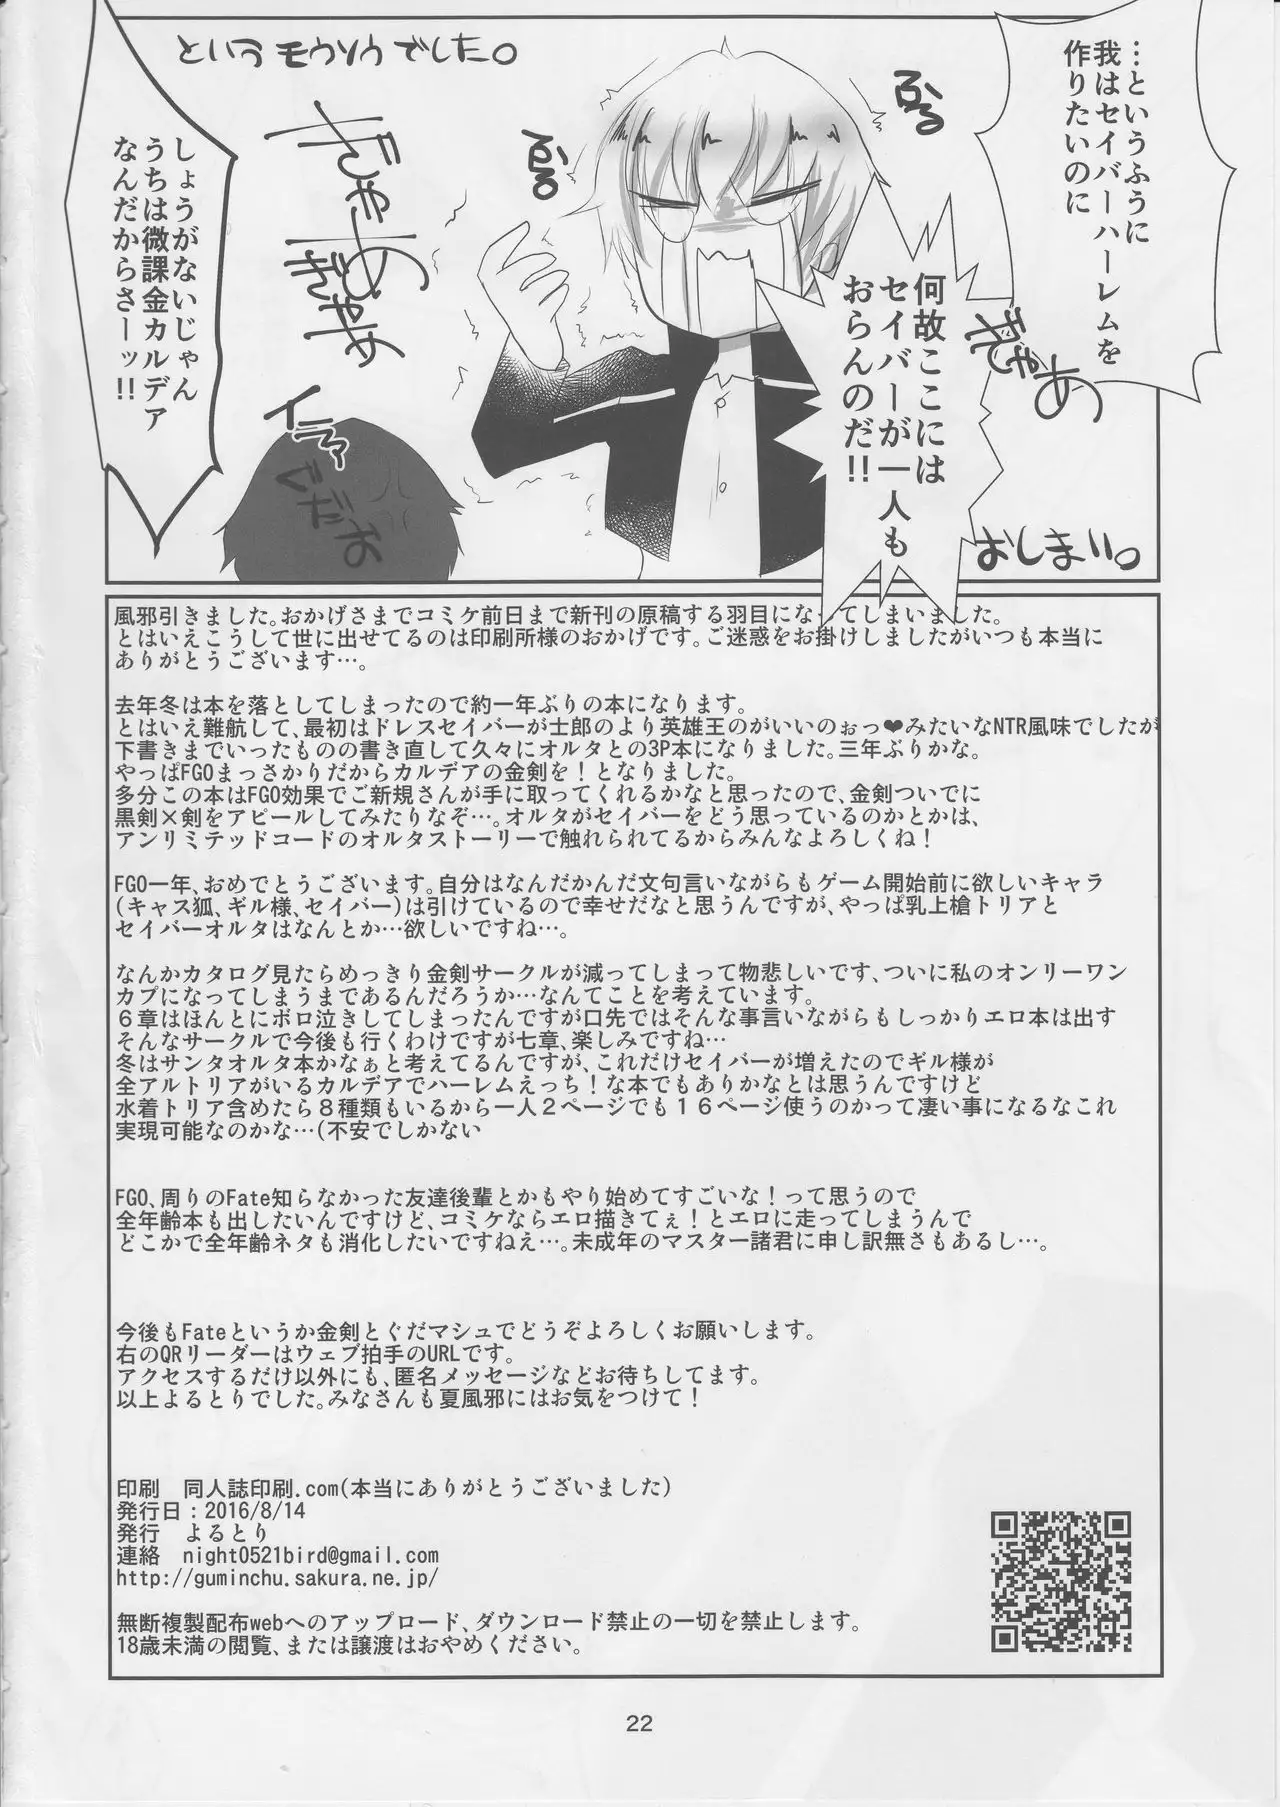 …というふうに
我はセイバーハーレムを
作りたいのに
何故ここには
セイバーが一人も
おらんのだ!!
ぷる
ぷる
というモウソウでした。
ぎゃあ
ぎゃあ
ぎゃあ
しょうがないじゃん
うちは微課金カルデア
なんだからさーッ!!
イラッ
じだお
おしまい。
風邪引きました。おかげさまでコミケ前日まで新刊の原稿する羽目になってしまいました。
とはいえこうして世に出せてるのは印刷所様のおかげです。ご迷惑をお掛けしましたがいつも本当に
ありがとうございます…。
去年冬は本を落としてしまったので約一年ぶりの本になります。
とはいえ難航して、最初はドレスセイバーが士郎のより英雄王のがいいのぉっ❤みたいなNTR風味でしたが
下書きまでいったものの書き直して久々にオルタとの3P本になりました。三年ぶりかな。
やっぱFGOまっさかりだからカルデアの金剣を!となりました。
多分この本はFGO効果でご新規さんが手に取ってくれるかなと思ったので、金剣ついでに
黒剣×剣をアピールしてみたりなぞ…。オルタがセイバーをどう思っているのかとかは、
アンリミテッドコードのオルタストーリーで触れられてるからみんなよろしくね!
FGO一年、おめでとうございます。自分はなんだかんだ文句言いながらもゲーム開始前に欲しいキャラ
(キャス狐、ギル様、セイバー)は引けているので幸せだなと思うんですが、やっぱ乳上槍トリアと
セイバーオルタはなんとか…欲しいですね…。
なんかカタログ見たらめっきり金剣サークルが減ってしまって物悲しいです、ついに私のオンリーワン
カプになってしまうまであるんだろうか…なんてことを考えています。
６章はほんとにボロ泣きしてしまったんですが口先ではそんな事言いながらもしっかりエロ本は出す
そんなサークルで今後も行くわけですが七章、楽しみですね…
冬はサンタオルタ本かなぁと考えてるんですが、これだけセイバーが増えたのでギル様が
全アルトリアがいるカルデアでハーレムえっち!な本でもありかなとは思うんですけど
水着トリア含めたら８種類もいるから一人２ページでも１６ページ使うのかって凄い事になるなこれ
実現可能なのかな…(不安でしかない
FGO、周りのFate知らなかった友達後輩とかもやり始めてすごいな!って思うので
全年齢本も出したいんですけど、コミケならエロ描きてぇ!とエロに走ってしまうんで
どこかで全年齢ネタも消化したいですねえ…。未成年のマスター諸君に申し訳無さもあるし…。
今後もFateというか金剣とぐだマシュでどうぞよろしくお願いします。
右のQRリーダーはウェブ拍手のURLです。
アクセスするだけ以外にも、匿名メッセージなどお待ちしてます。
以上よるとりでした。みなさんも夏風邪にはお気をつけて!
印刷　同人誌印刷.com(本当にありがとうございました)
発行日：2016/8/14
発行　よるとり
連絡　night0521bird@gmail.com
http://guminchu.sakura.ne.jp/
無断複製配布webへのアップロード、ダウンロード禁止の一切を禁止します。
18歳未満の閲覧、または譲渡はおやめください。
22